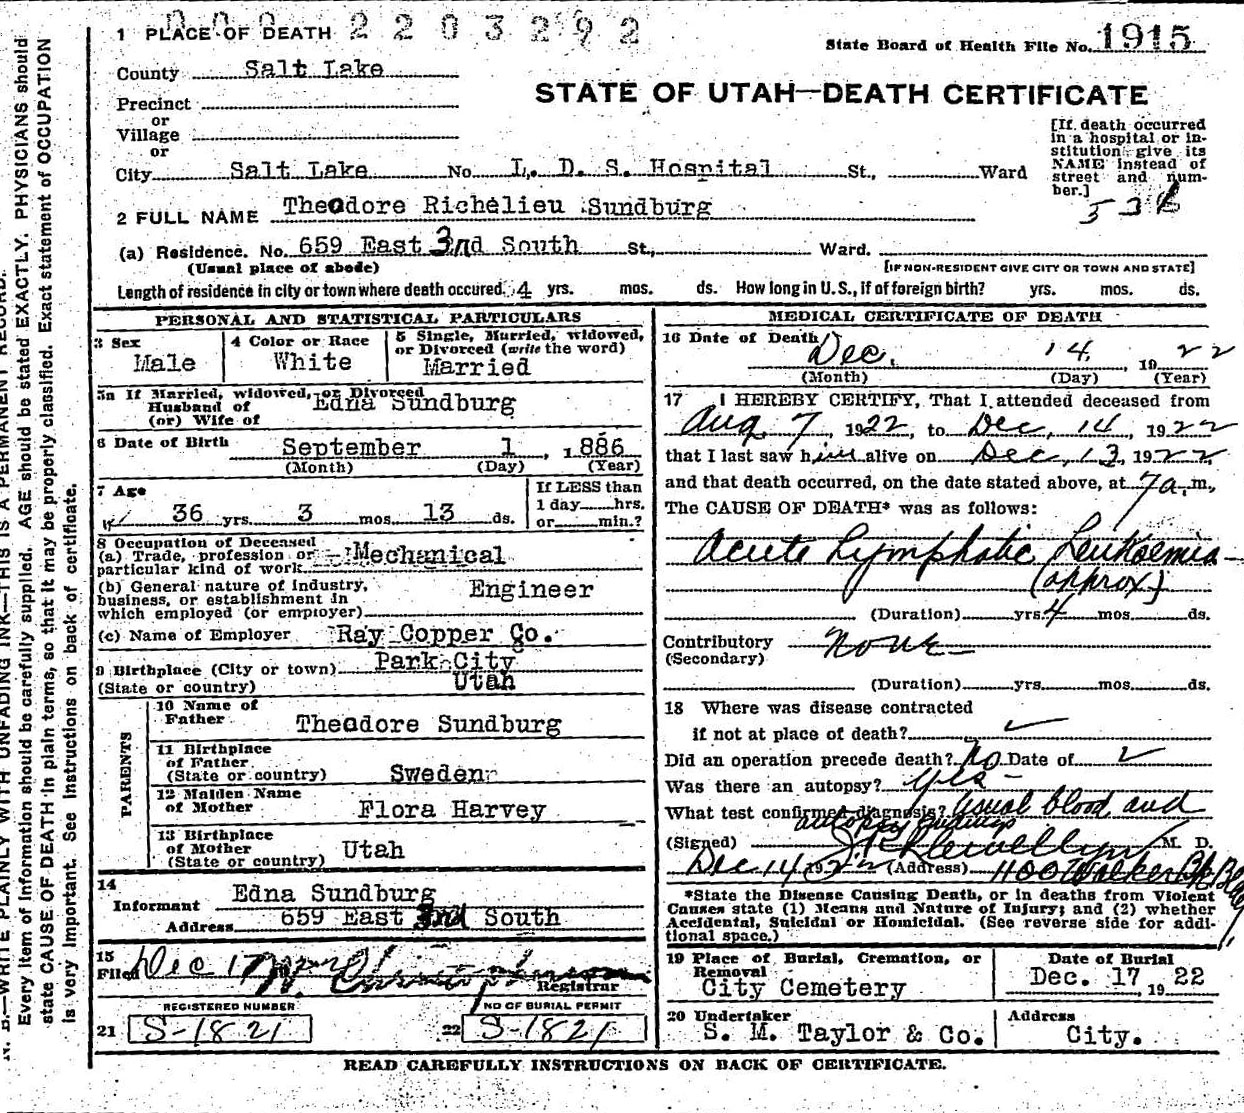 2203292
1 PLACE OF DEATH
State Board of Health File No. 1915
County Salt Lake
STATE OF UTAH—DEATH CERTIFICATE
Precinct
or
Village
or
City Salt Lake No. L. D. S. Hospital St., Ward
[If death occurred in a hospital or institution give its NAME instead of street and number.]
2 FULL NAME Theodore Richelieu Sundburg
(a) Residence. No. 659 East 3nd South St., Ward.
(Usual place of abode) [IF NON-RESIDENT GIVE CITY OR TOWN AND STATE]
Length of residence in city or town where death occured. 4 yrs. mos. ds. How long in U. S., if of foreign birth? yrs. mos. ds.
PERSONAL AND STATISTICAL PARTICULARS
3 Sex Male
4 Color or Race White
5 Single, Married, widowed, or Divorced (write the word) Married
5a If Married, widowed, or Divorced
Husband of Edna Sundburg
(or) Wife of
6 Date of Birth September 1, 1886
(Month) (Day) (Year)
7 Age 36 yrs. 3 mos. 13 ds.
If LESS than
1 day hrs.
or min.?
8 Occupation of Deceased
(a) Trade, profession or
particular kind of work Mechanical
(b) General nature of industry,
business, or establishment in
which employed (or employer) Engineer
(c) Name of Employer Ray Copper Co.
9 Birthplace (City or town) Park City
(State or country) Utah
PARENTS
10 Name of
Father Theodore Sundburg
11 Birthplace
of Father
(State or country) Sweden
12 Maiden Name
of Mother Flora Harvey
13 Birthplace
of Mother
(State or country) Utah
14
Informant Edna Sundburg
Address 659 East 3nd South
15
Filed Dec 17
Registrar
REGISTERED NUMBER
21 S-1821
NO OF BURIAL PERMIT
22 S-1821
MEDICAL CERTIFICATE OF DEATH
16 Date of Death Dec. 14, 1922
(Month) (Day) (Year)
17 I HEREBY CERTIFY, That I attended deceased from
Aug. 7, 1922, to Dec, 14, 1922
that I last saw him alive on Dec, 13, 1922,
and that death occurred, on the date stated above, at 7 a. m.,
The CAUSE OF DEATH* was as follows:
Acute Lymphatic Leukaemia
(approx)
(Duration) yrs. 4 mos. ds.
Contributory None
(Secondary)
(Duration) yrs. mos. ds.
18 Where was disease contracted
if not at place of death?
Did an operation precede death? No Date of
Was there an autopsy? yes
What test confirmed diagnosis? Usual blood and
autopsy findings
(Signed) M. D.
Dec 14 1922 (Address) 1100 Walker Bk Bldg,
*State the Disease Causing Death, or in deaths from Violent
Causes state (1) Means and Nature of Injury; and (2) whether
Accidental, Suicidal or Homicidal. (See reverse side for addi-
tional space.)
19 Place of Burial, Cremation, or
Removal
City Cemetery
Date of Burial
Dec. 17, 1922
20 Undertaker
S. M. Taylor & Co.
Address
City.
READ CAREFULLY INSTRUCTIONS ON BACK OF CERTIFICATE.
N. B.—WRITE PLAINLY WITH UNFADING INK—THIS IS A PERMANENT RECORD.
Every item of information should be carefully supplied. AGE should be stated EXACTLY. PHYSICIANS should
state CAUSE OF DEATH in plain terms, so that it may be properly classified. Exact statement of OCCUPATION
is very important. See instructions on back of certificate.